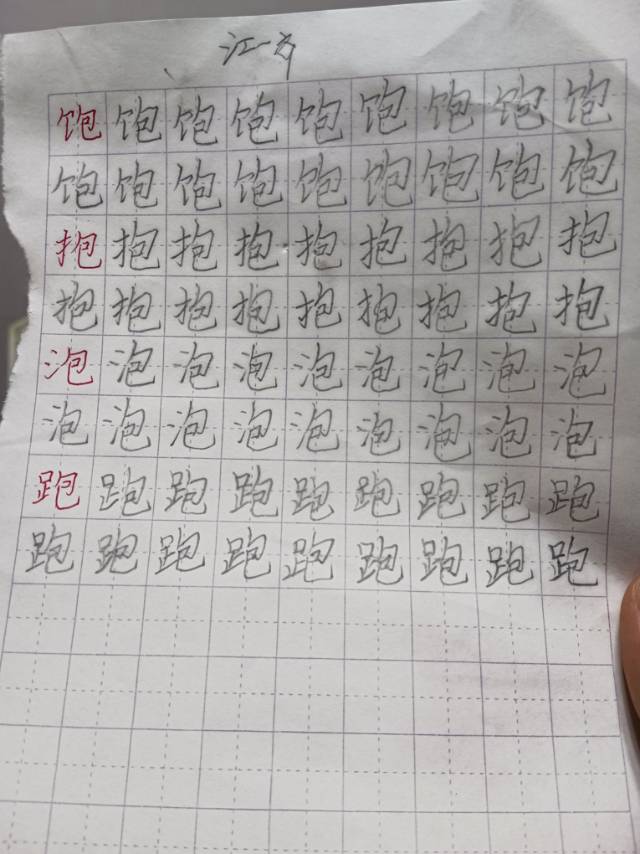 江一方
饱饱饱饱饱饱饱饱饱
饱饱饱饱饱饱饱饱饱
抱抱抱抱抱抱抱抱抱
抱抱抱抱抱抱抱抱抱
泡泡泡泡泡泡泡泡泡
泡泡泡泡泡泡泡泡泡
跑跑跑跑跑跑跑跑跑
跑跑跑跑跑跑跑跑跑